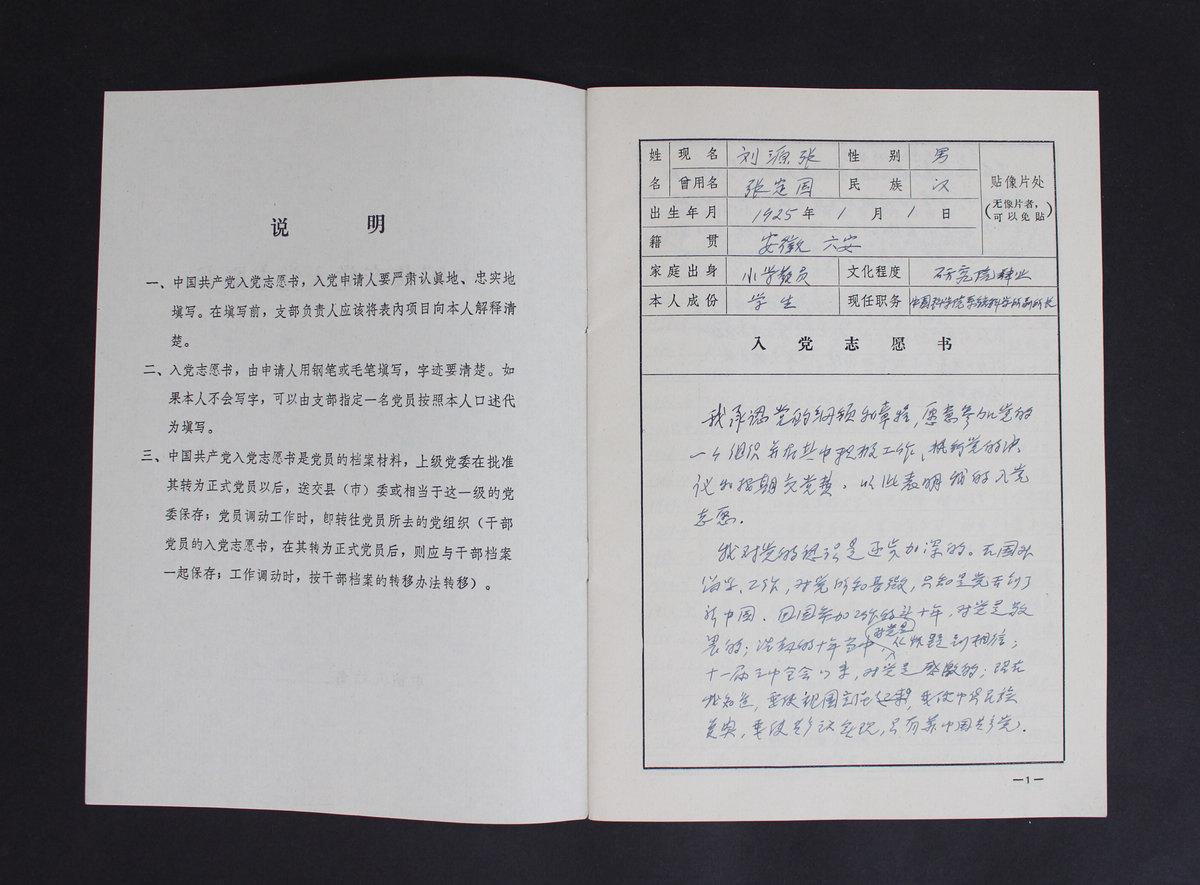 说 明
一、中国共产党入党志愿书，入党申请人要严肃认真地、忠实地
填写。在填写前，支部负责人应该将表内项目向本人解释清
楚。
二、入党志愿书，由申请人用钢笔或毛笔填写，字迹要清楚。如
果本人不会写字，可以由支部指定一名党员按照本人口述代
为填写。
三、中国共产党入党志愿书是党员的档案材料，上级党委在批准
其转为正式党员以后，送交县（市）委或相当于这一级的党
委保存；党员调动工作时，即转往党员所去的党组织（干部
党员的入党志愿书，在其转为正式党员后，则应与干部档案
一起保存；工作调动时，按干部档案的转移办法转移）。
姓 现名 刘源张 性别 男
名 曾用名 张定国 民族 汉 贴像片处
（无像片者，可以免贴）
出生年月 1925年1月1日
籍贯 安徽 六安
家庭出身 小学教员 文化程度 研究院肄业
本人成份 学生 现任职务 中国科学院系统科学所副所长
入党志愿书
我承认党的纲领和章程，愿意参加党的
一个组织并在其中积极工作、执行党的决
议和按期交党费。以此表明我的入党
志愿。
我对党的认识是逐步加深的。在国外
留学、工作，对党所知甚微，只知是党
新中国。回国参加工作的头十年，对党是敬
畏的；浩劫的十年当中对党是从怀疑到相信；
十一届三中全会以来，对党是感激的；现在
我知道，要使祖国，要使中华民族
，要使实现，只有靠中国共产党。
—1—